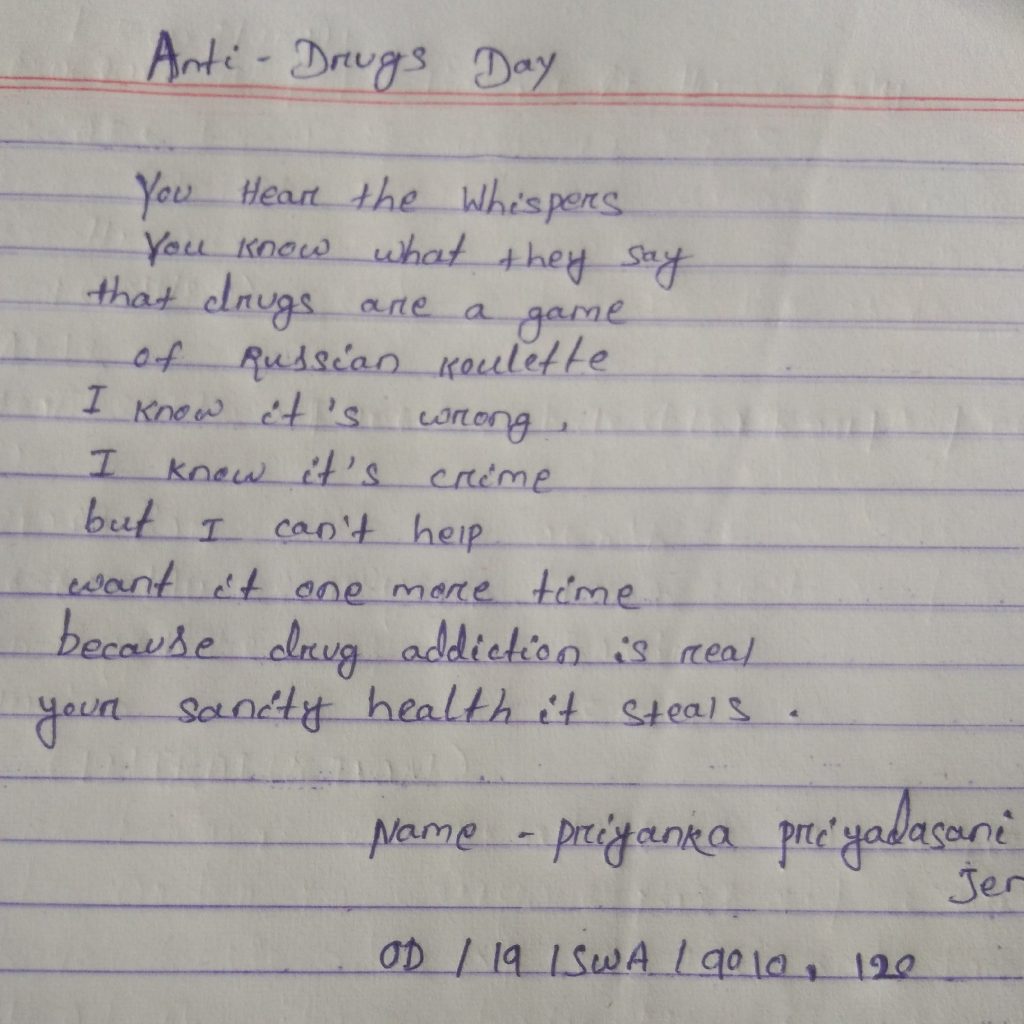 Anti - Drugs Day
You Hear the Whispers
You know what they say
that drugs are a game
of Russian Roulette
I know it's wrong,
I know it's crime
but I can't help
want it one more time
because drug addiction is real
your sanity health it steals .
Name - Priyanka Priyadasani
Jer
OD / 19 / SWA / 9010, 120